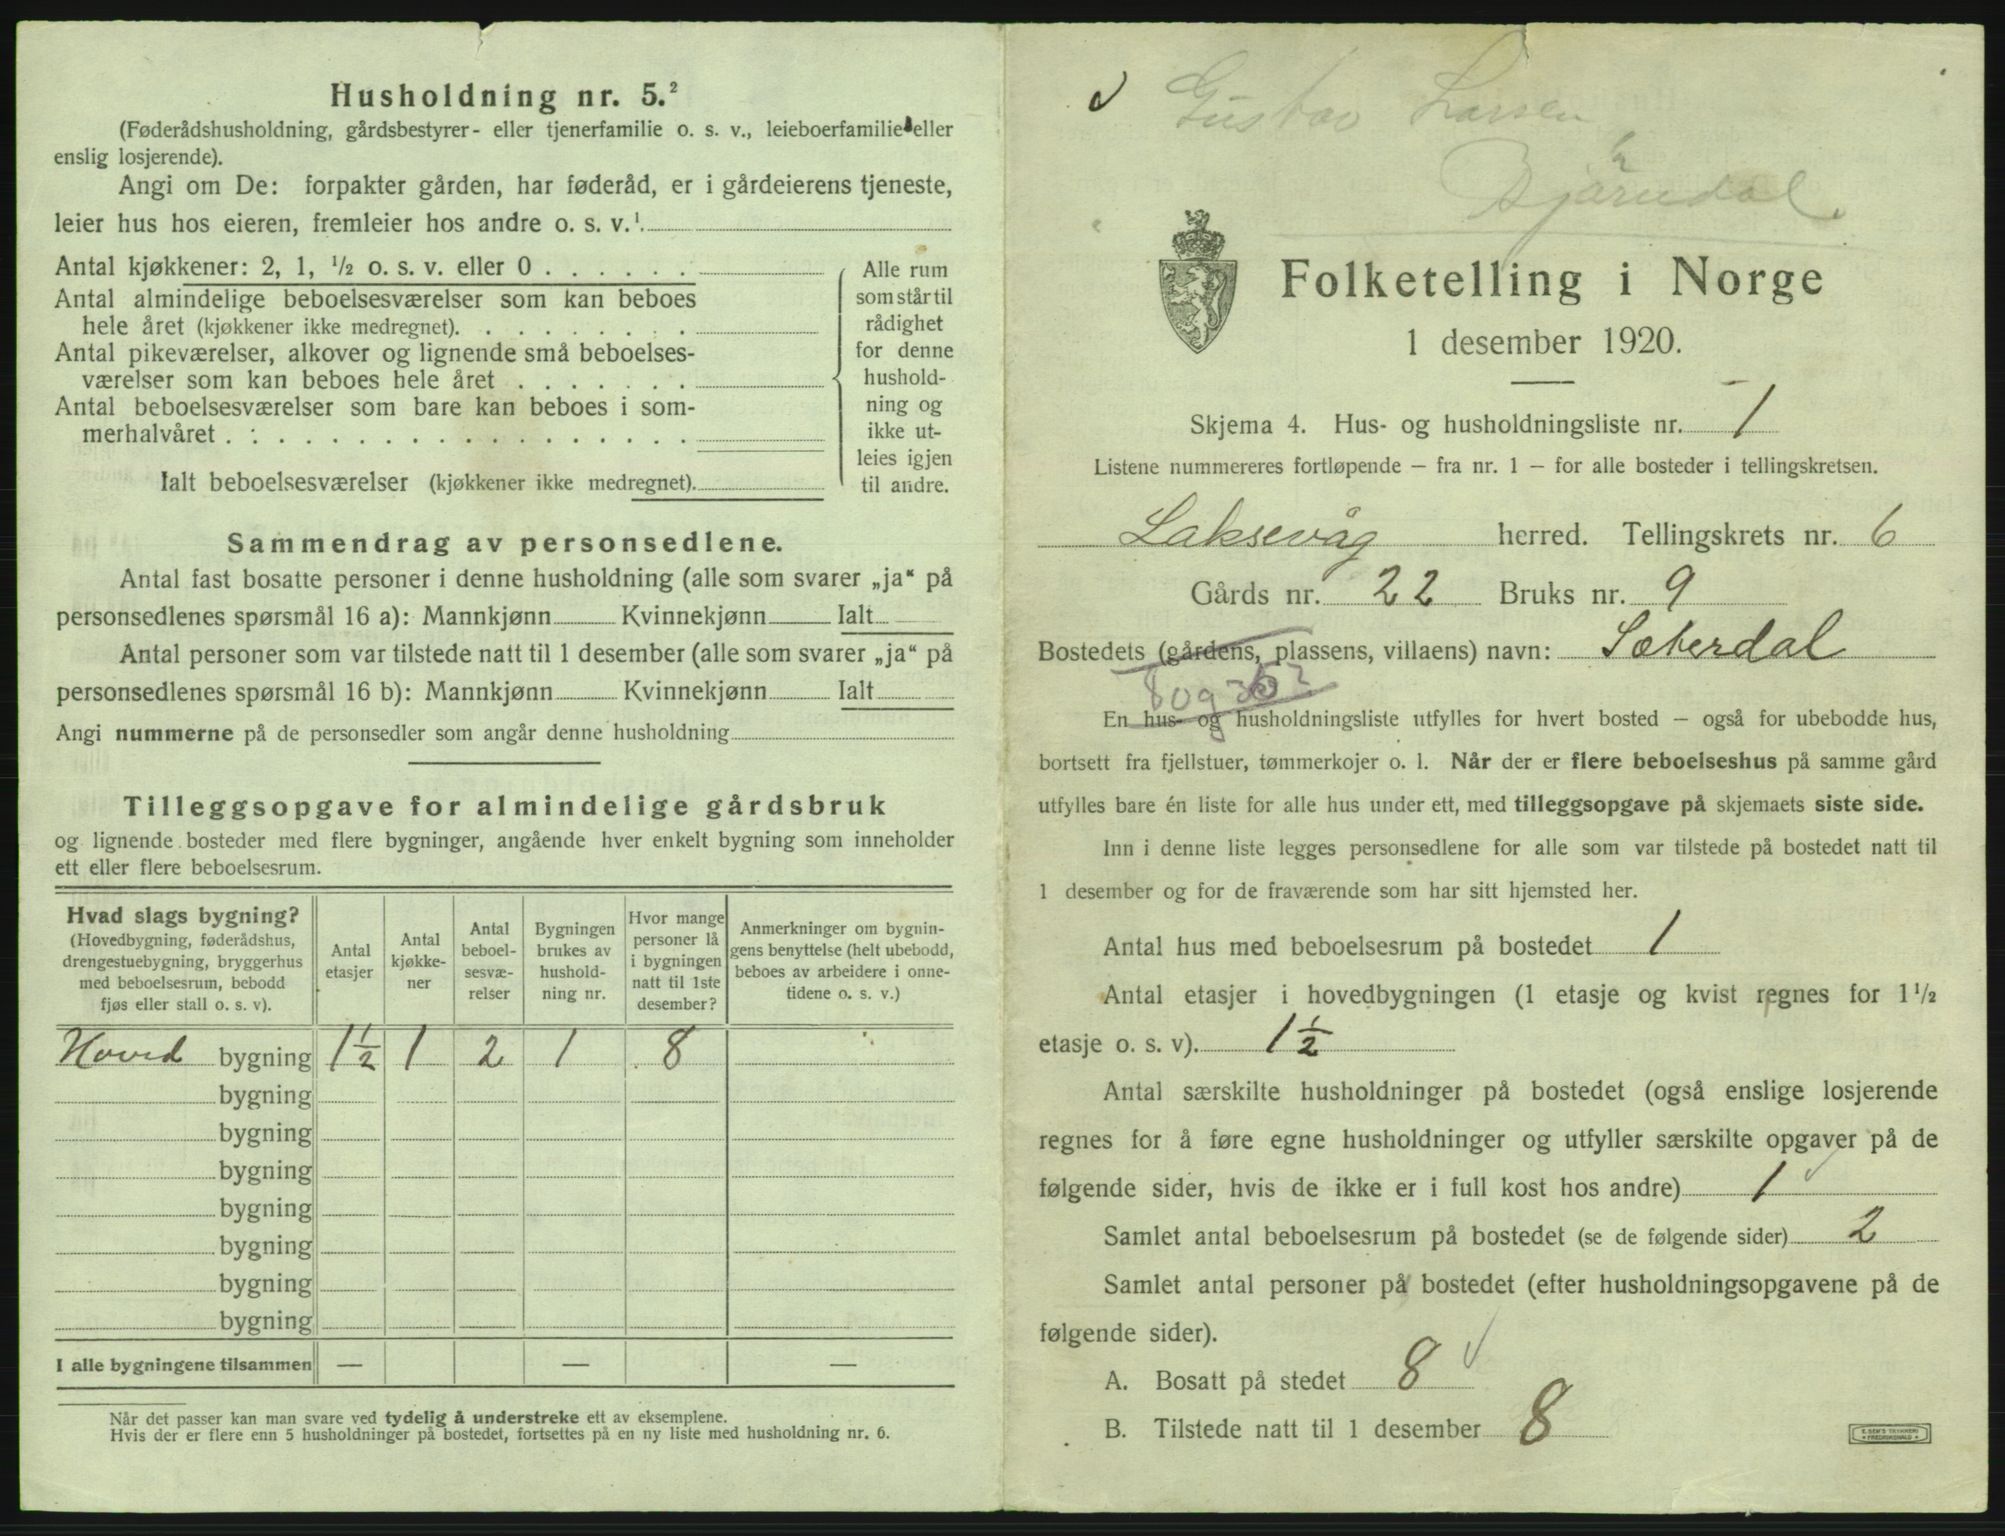 Husholdning nr. 5.²
(Føderådshusholdning, gårdsbestyrer- eller tjenerfamilie o. s. v., leieboerfamilie eller
enslig losjerende).
Angi om De: forpakter gården, har føderåd, er i gårdeierens tjeneste,
leier hus hos eieren, fremleier hos andre o. s. v.¹.
Antal kjøkkener: 2, 1, ½ o. s. v. eller 0 . . . . . .
Antal almindelige beboelsesværelser som kan beboes
hele året (kjøkkener ikke medregnet). . . . . . . . .
Antal pikeværelser, alkover og lignende små beboelses-
værelser som kan beboes hele året . . . . . . .
Antal beboelsesværelser som bare kan beboes i som-
merhalvåret . . . . . . . . . . . . . . . . . .
Ialt beboelsesværelser (kjøkkener ikke medregnet).
Alle rum
som står til
rådighet
for denne
hushold-
ning og
ikke ut-
leies igjen
til andre.
Sammendrag av personsedlene.
Antal fast bosatte personer i denne husholdning (alle som svarer „ja“ på
personsedlenes spørsmål 16 a): Mannkjønn Kvinnekjønn Ialt
Antal personer som var tilstede natt til 1 desember (alle som svarer „ja“ på
personsedlenes spørsmål 16 b): Mannkjønn Kvinnekjønn Ialt
Angi nummerne på de personsedler som angår denne husholdning
Tilleggsopgave for almindelige gårdsbruk
og lignende bosteder med flere bygninger, angående hver enkelt bygning som inneholder
ett eller flere beboelsesrum.
Hvad slags bygning?
(Hovedbygning, føderådshus,
drengestuebygning, bryggerhus
med beboelsesrum, bebodd
fjøs eller stall o. s. v).
Antal
etasjer
Antal
kjøkke-
ner
Antal
beboel-
sesvæ-
relser
Bygningen
brukes av
hushold-
ning nr.
Hvor mange
personer lå
i bygningen
natt til 1ste
desember?
Anmerkninger om bygnin-
gens benyttelse (helt ubebodd,
beboes av arbeidere i onne-
tidene o. s. v.)
Hoved bygning 1½ 1 2 1 8
bygning
bygning
bygning
bygning
bygning
bygning
bygning
I alle bygningene tilsammen — — —
Når det passer kan man svare ved tydelig å understreke ett av eksemplene.
Hvis der er flere enn 5 husholdninger på bostedet, fortsettes på en ny liste med husholdning nr. 6.
Gustav Larsen
Bjørndal
Folketelling i Norge
1 desember 1920.
Skjema 4. Hus- og husholdningsliste nr. 1
Listene nummereres fortløpende — fra nr. 1 — for alle bosteder i tellingskretsen.
Laksevåg herred. Tellingskrets nr. 6
Gårds nr. 22 Bruks nr. 9
Bostedets (gårdens, plassens, villaens) navn: Sæterdal
En hus- og husholdningsliste utfylles for hvert bosted — også for ubebodde hus,
bortsett fra fjellstuer, tømmerkojer o. l. Når der er flere beboelseshus på samme gård
utfylles bare én liste for alle hus under ett, med tilleggsopgave på skjemaets siste side.
Inn i denne liste legges personsedlene for alle som var tilstede på bostedet natt til
1 desember og for de fraværende som har sitt hjemsted her.
Antal hus med beboelsesrum på bostedet 1
Antal etasjer i hovedbygningen (1 etasje og kvist regnes for 1½
etasje o. s. v). 1½
Antal særskilte husholdninger på bostedet (også enslige losjerende
regnes for å føre egne husholdninger og utfyller særskilte opgaver på de
følgende sider, hvis de ikke er i full kost hos andre) 1
Samlet antal beboelsesrum på bostedet (se de følgende sider) 2
Samlet antal personer på bostedet (efter husholdningsopgavene på de
følgende sider).
A. Bosatt på stedet 8
B. Tilstede natt til 1 desember 8